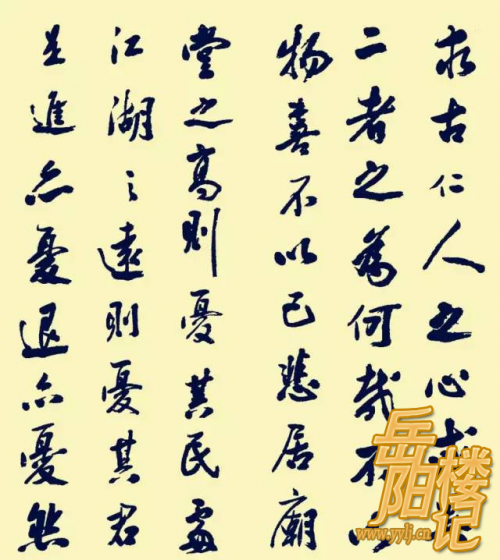 求古仁人之心或
二者之為何哉不以
物喜不以己悲居廟
堂之高則憂其民處
江湖之遠則憂其君
是進亦憂退亦憂然
岳阳楼记
www.yylj.cn